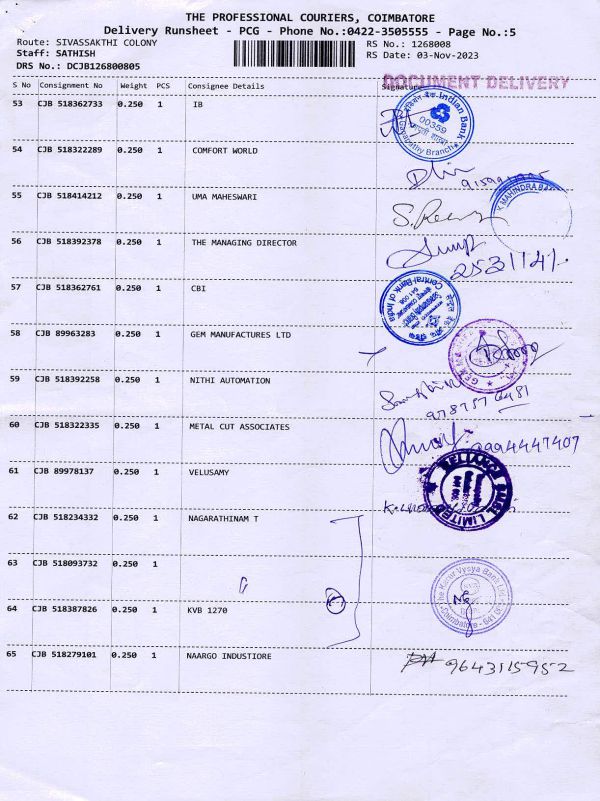 THE PROFESSIONAL COURIERS, COIMBATORE
Delivery Runsheet - PCG - Phone No.:0422-3505555 - Page No.:5
Route: SIVASSAKTHI COLONY
RS No.: 1268008
Staff: SATHISH
RS Date: 03-Nov-2023
DRS No.: DCJB126800805
DOCUMENT DELIVERY
S No Consignment No Weight PCS Consignee Details Signature
53 CJB 518362733 0.250 1 IB
Indian Bank
00359
Branch
54 CJB 518322289 0.250 1 COMFORT WORLD
55 CJB 518414212 0.250 1 UMA MAHESWARI
MAHINDRA
56 CJB 518392378 0.250 1 THE MANAGING DIRECTOR
2531141
57 CJB 518362761 0.250 1 CBI
Central Bank of India
58 CJB 89963283 0.250 1 GEM MANUFACTURES LTD
59 CJB 518392258 0.250 1 NITHI AUTOMATION
9787576481
60 CJB 518322335 0.250 1 METAL CUT ASSOCIATES
9994447407
61 CJB 89978137 0.250 1 VELUSAMY
RELIANCE
LIMITED
62 CJB 518234332 0.250 1 NAGARATHINAM T
63 CJB 518093732 0.250 1
The Karur Vysya Bank Ltd
Coimbatore - 641
64 CJB 518387826 0.250 1 KVB 1270
65 CJB 518279101 0.250 1 NAARGO INDUSTIORE
9643115952